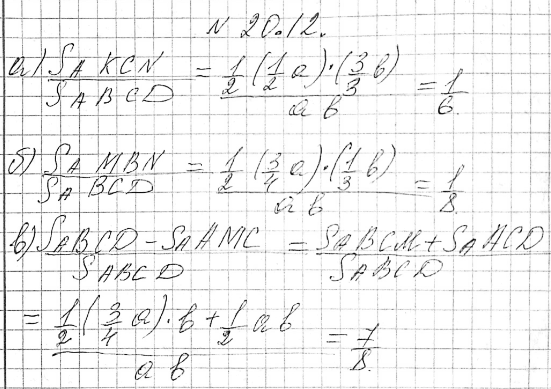 N 20.12.
а) S_A KCN / S ABCD = 1/2 (1/2 a)·(3/3 b) / a b = 1/6.
б) S_A MBN / S_A BCD = 1/2 (3/4 a)·(1/3 b) / a b = 1/8.
в) S ABCD - S_A AMC / S ABCD = S_A BCM + S_A ACD / S ABCD
= 1/2 (3/4 a)·b + 1/2 ab / a b = 7/8.